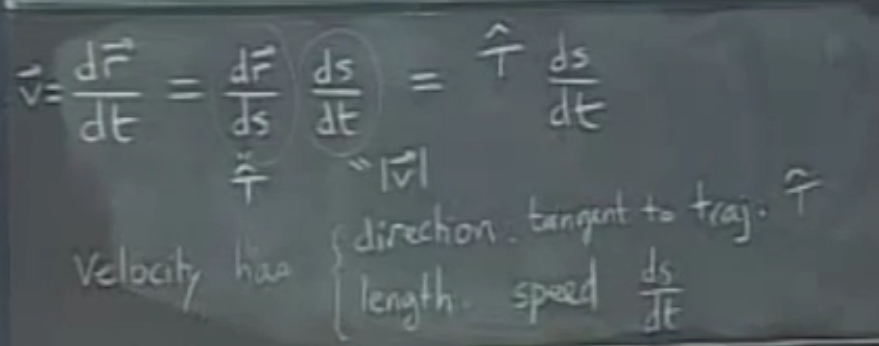 v⃗ = dr⃗/dt = dr⃗/ds ds/dt = T̂ ds/dt
T̂ " |v⃗|
Velocity has { direction. tangent to traj. T̂
length. speed ds/dt